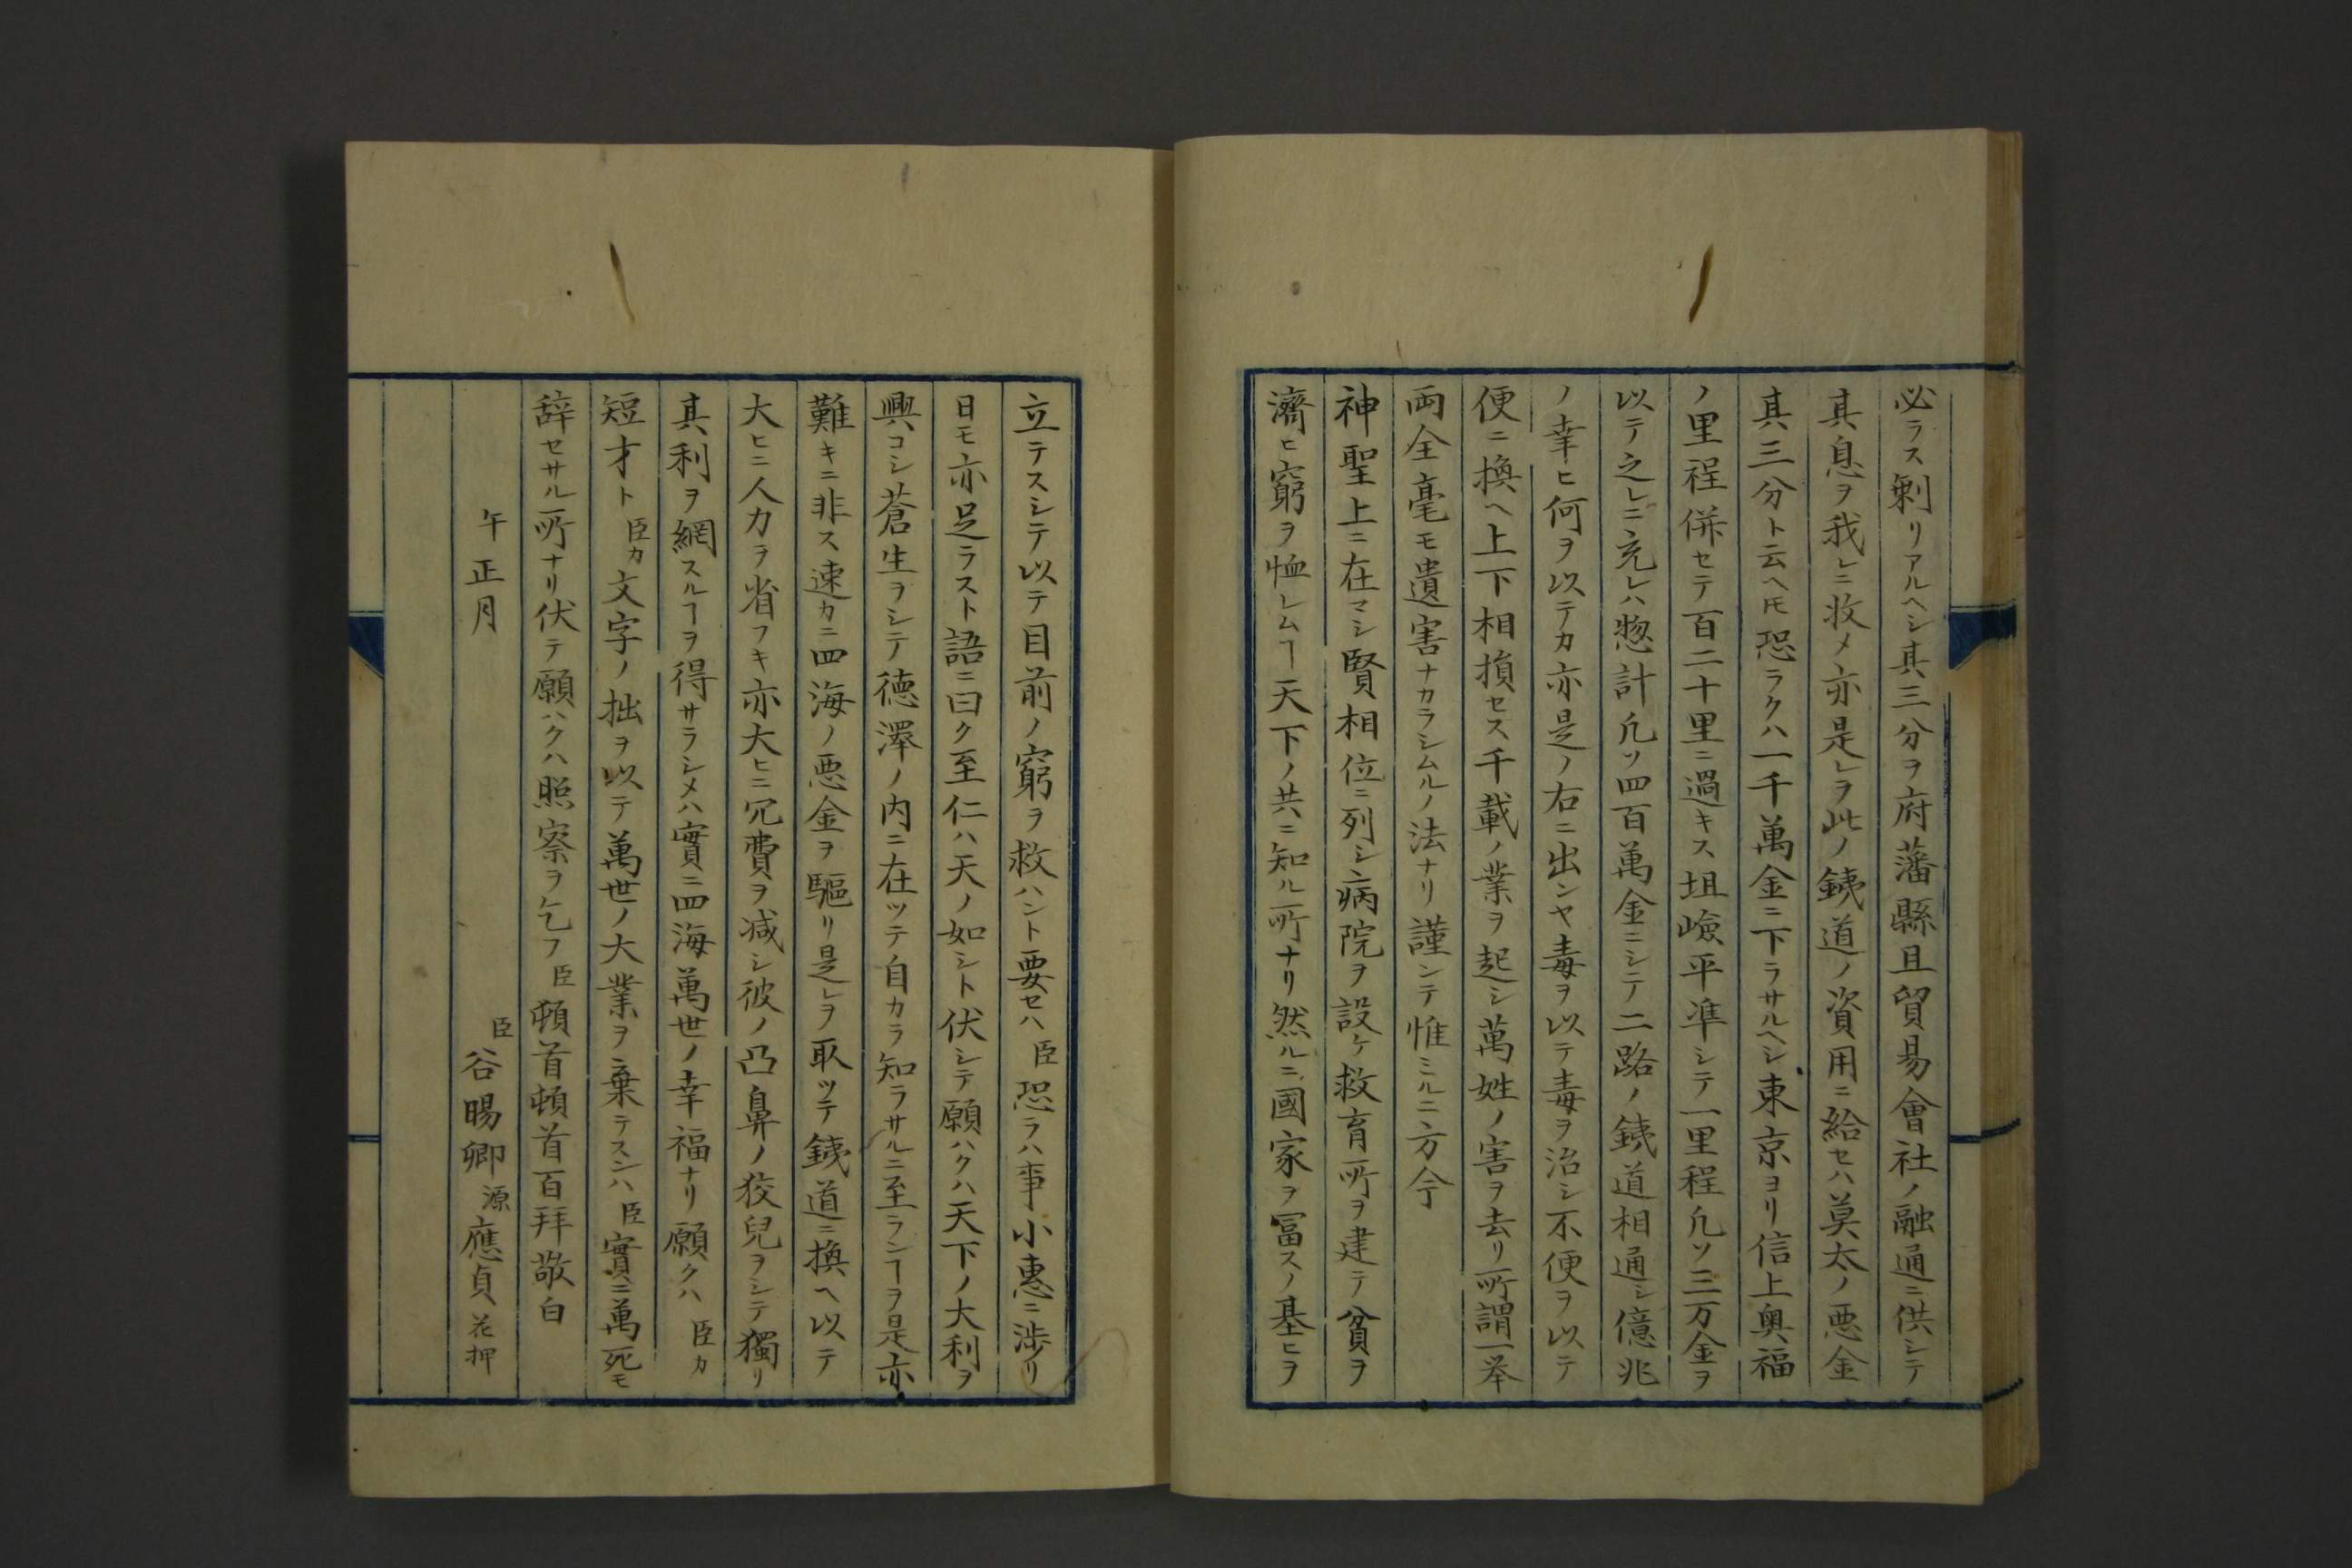 必ラス剰リアルヘシ其三分ヲ府藩縣且貿易會社ノ融通ニ供シテ
其息ヲ我レニ收メ亦是レヲ此ノ銕道ノ資用ニ給セハ莫太ノ悪金
其三分ト云ヘ𪜈恐ラクハ一千萬金ニ下ラサルヘシ東京ヨリ信上奥福
ノ里程併セテ百二十里ニ過キス坦嶮平準シテ一里程凡ソ三万金ヲ
以テ之レニ充レハ惣計凡ソ四百萬金ニシテ二路ノ銕道相通シ億兆
ノ幸ヒ何ヲ以テカ亦是ノ右ニ出ンヤ毒ヲ以テ毒ヲ治シ不便ヲ以テ
便ニ換ヘ上下相損セス千載ノ業ヲ起シ萬姓ノ害ヲ去リ所謂一举
両全毫モ遺害ナカラシムルノ法ナリ謹ンテ惟ミルニ方今
神聖上ニ在マシ賢相位ニ列シ病院ヲ設ケ救育所ヲ建テ貧ヲ
濟ヒ窮ヲ恤レムヿ天下ノ共ニ知ル所ナリ然ルニ國家ヲ冨スノ基ヒヲ
立テスシテ以テ目前ノ窮ヲ救ハント要セハ臣恐ラハ事小惠ニ渉リ
日モ亦足ラスト語ニ曰ク至仁ハ天ノ如シト伏シテ願ハクハ天下ノ大利ヲ
興コシ蒼生ヲシテ徳澤ノ内ニ在ツテ自カラ知ラサルニ至ランヿヲ是亦
難キニ非ス速カニ四海ノ悪金ヲ驅リ是レヲ取ツテ銕道ニ換ヘ以テ
大ヒニ人力ヲ省フキ亦大ヒニ冗費ヲ減シ彼ノ凸鼻ノ狡兒ヲシテ獨リ
其利ヲ網スルヿヲ得サラシメハ實ニ四海萬世ノ幸福ナリ願クハ臣カ
短才ト臣カ文字ノ拙ヲ以テ萬世ノ大業ヲ棄テスンハ臣實ニ萬死モ
辞セサル所ナリ伏テ願ハクハ照察ヲ乞フ臣頓首頓首百拜敬白
午正月
臣谷暘卿源應貞花押